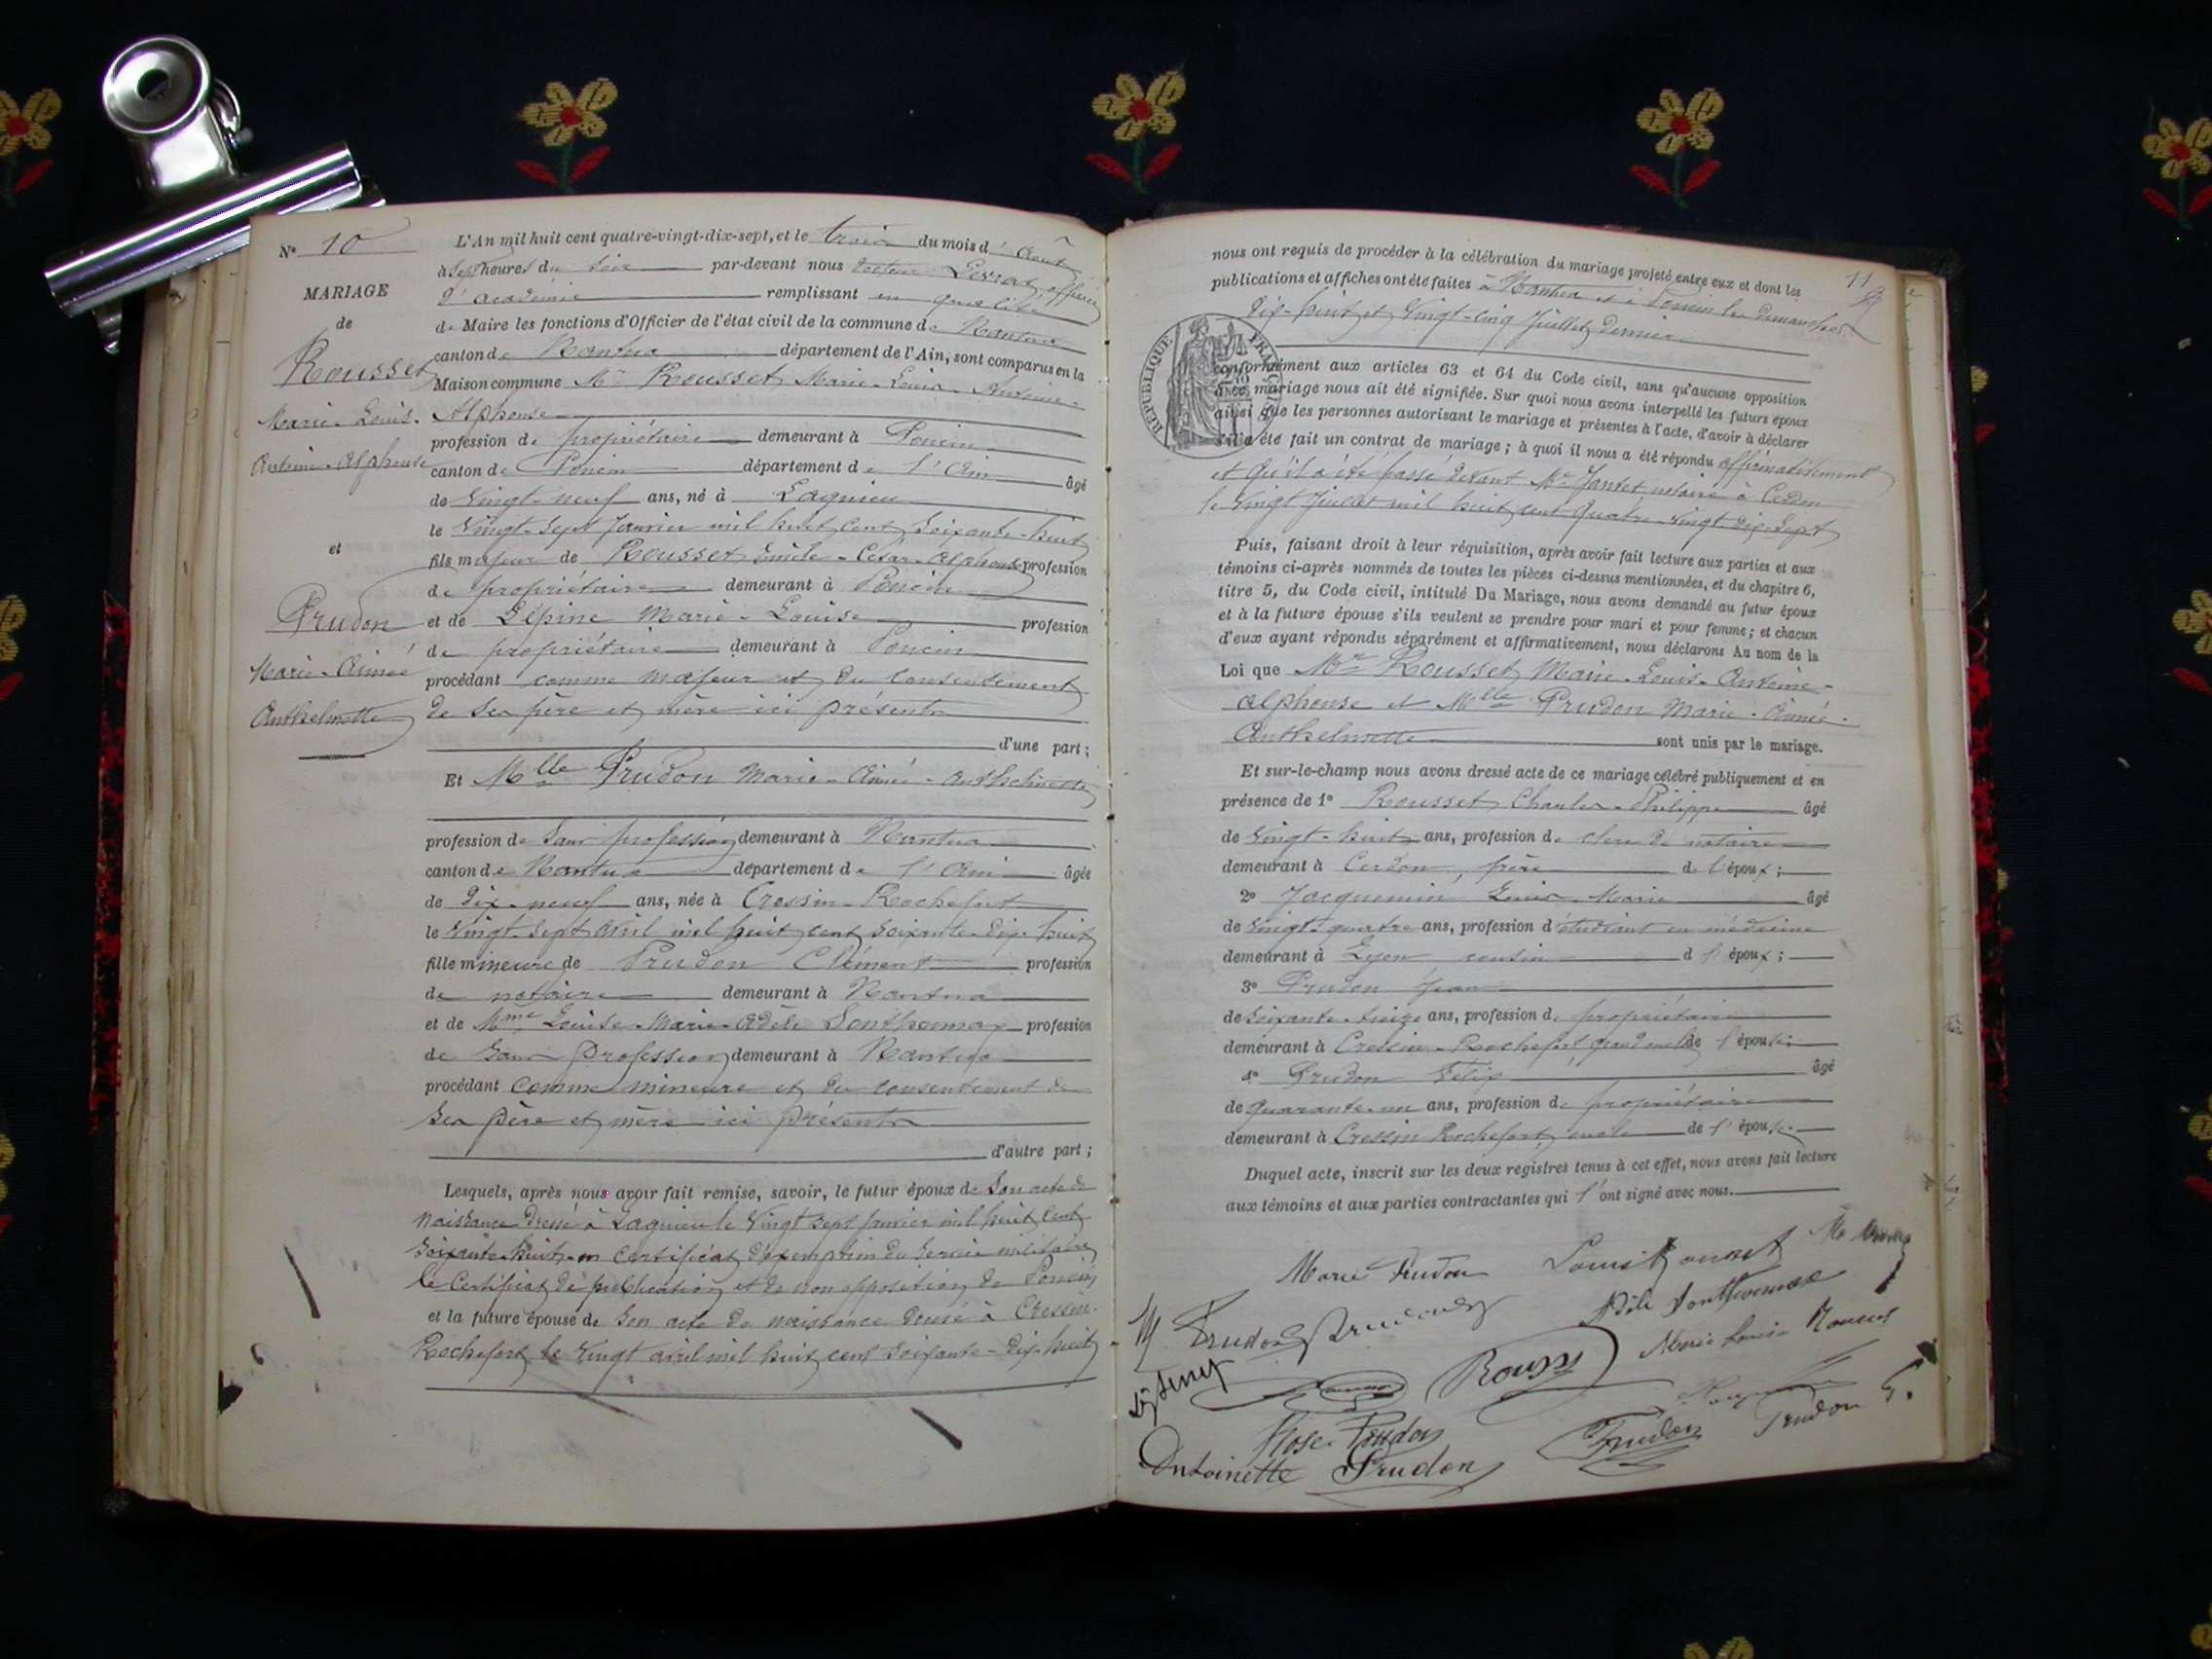 N° 10
MARIAGE
de
Rousset
Marie-Louis-
Antoine-Alphonse
et
Prudon
Marie-Aimée
Anthelmette
L'An mil huit cent quatre-vingt-dix-sept, et le trois du mois d'Août
à sept heures du soir par-devant nous docteur officier
d'académie remplissant en qualité
de Maire les fonctions d'Officier de l'état civil de la commune de Nantua
canton de Nantua département de l'Ain, sont comparus en la
Maison commune Mr Rousset Marie-Louis-Antoine-
Alphonse
profession de propriétaire demeurant à Poncin
canton de Poncin département de l'Ain âgé
de Vingt-neuf ans, né à Lagnieu
le Vingt-sept Janvier mil huit cent soixante-huit
fils majeur de Rousset Emile-César-Alphonse profession
de propriétaire demeurant à Poncin
et de Lépine Marie-Louise profession
de propriétaire demeurant à Poncin
procédant comme majeur et du consentement
de ses père et mère ici présents
d'une part;
Et Mlle Prudon Marie-Aimée-Anthelmette
profession de Sans profession demeurant à Nantua
canton de Nantua département de l'Ain âgée
de dix-neuf ans, née à Cressin-Rochefort
le Vingt-sept avril mil huit cent soixante-dix-huit
fille mineure de Prudon Clément profession
de notaire demeurant à Nantua
et de Mme Louise-Marie-Adèle Sonthonnax profession
de Sans profession demeurant à Nantua
procédant comme mineure et du consentement de
ses père et mère ici présents
d'autre part;
Lesquels, après nous avoir fait remise, savoir, le futur époux de son acte de
naissance dressé à Lagnieu le Vingt sept janvier mil huit cent
soixante-huit, un certificat d'exemption du service militaire,
le certificat de publication et de non opposition de Poncin
et la future épouse de son acte de naissance dressé à Cressin-
Rochefort le Vingt avril mil huit cent soixante-dix-huit
11
nous ont requis de procéder à la célébration du mariage projeté entre eux et dont les
publications et affiches ont été faites à Nantua et à Poncin les dimanches
dix-huit et Vingt-cinq Juillet dernier
RÉPUBLIQUE FRANÇAISE
conformément aux articles 63 et 64 du Code civil, sans qu'aucune opposition
à ce mariage nous ait été signifiée. Sur quoi nous avons interpellé les futurs époux
ainsi que les personnes autorisant le mariage et présentes à l'acte, d'avoir à déclarer
s'il a été fait un contrat de mariage; à quoi il nous a été répondu affirmativement
et qu'il a été passé devant Me Jantet notaire à Cerdon
le Vingt Juillet mil huit cent quatre-vingt-dix-sept
Puis, faisant droit à leur réquisition, après avoir fait lecture aux parties et aux
témoins ci-après nommés de toutes les pièces ci-dessus mentionnées, et du chapitre 6,
titre 5, du Code civil, intitulé Du Mariage, nous avons demandé au futur époux
et à la future épouse s'ils veulent se prendre pour mari et pour femme; et chacun
d'eux ayant répondu séparément et affirmativement, nous déclarons Au nom de la
Loi que Mr Rousset Marie-Louis-Antoine-
Alphonse et Mlle Prudon Marie-Aimée-
Anthelmette sont unis par le mariage.
Et sur-le-champ nous avons dressé acte de ce mariage célébré publiquement et en
présence de 1° Rousset Charles-Philippe âgé
de Vingt-huit ans, profession de clerc de notaire
demeurant à Cerdon, frère de l'époux;
2° Jacquemin Louis-Marie âgé
de Vingt-quatre ans, profession d'étudiant en médecine
demeurant à Lyon cousin d l'époux;
3° Prudon Jean
de soixante-treize ans, profession de propriétaire
demeurant à Cressin-Rochefort, grand oncle de l'épouse;
4° Prudon Félix âgé
de quarante-un ans, profession de propriétaire
demeurant à Cressin Rochefort, oncle de l'épouse
Duquel acte, inscrit sur les deux registres tenus à cet effet, nous avons fait lecture
aux témoins et aux parties contractantes qui l'ont signé avec nous.
Marie Prudon Louis Rousset
M. Prudon Adèle Sonthonnax
Rousset Marie Louise Rousset
Rose Prudon Prudon Prudon F.
Antoinette Prudon